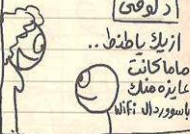 دلوقتي
ازيك يا طنط..
ماما كانت
عايزه منك
باسوورد ال Wifi